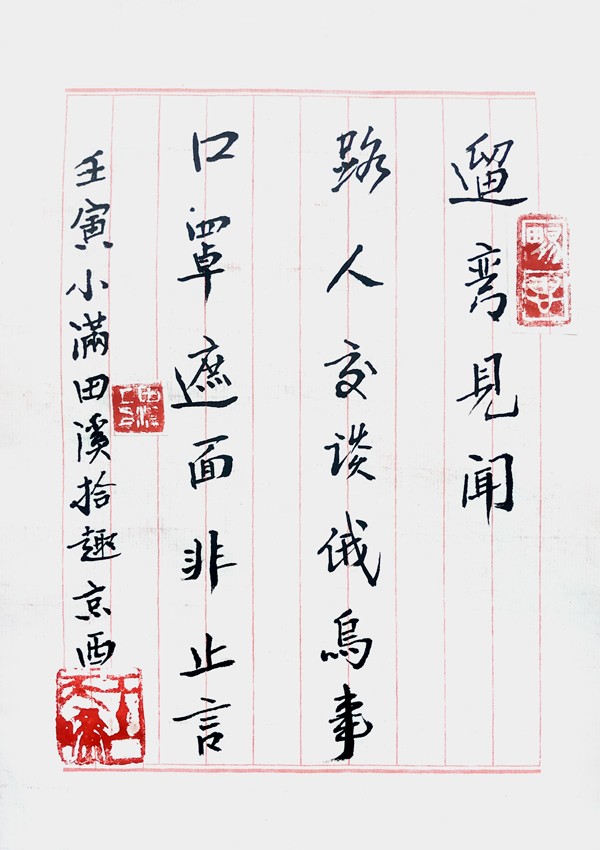 遛彎見聞
路人交談俄烏事
口罩遮面非止言
壬寅小滿田溪拾趣京西